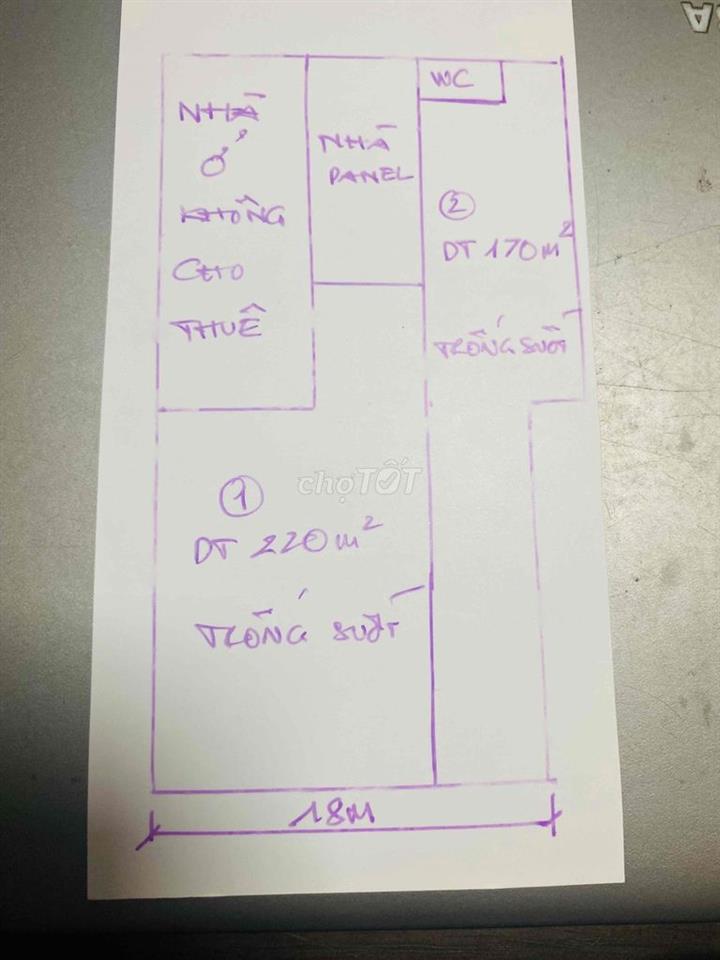 NHÀ
Ở
KHÔNG
CHO
THUÊ
NHÀ
PANEL
WC
②
DT 170M²
TRỐNG SUỐT
①
DT 220m²
TRỐNG SUỐT
18M
chợTỐT